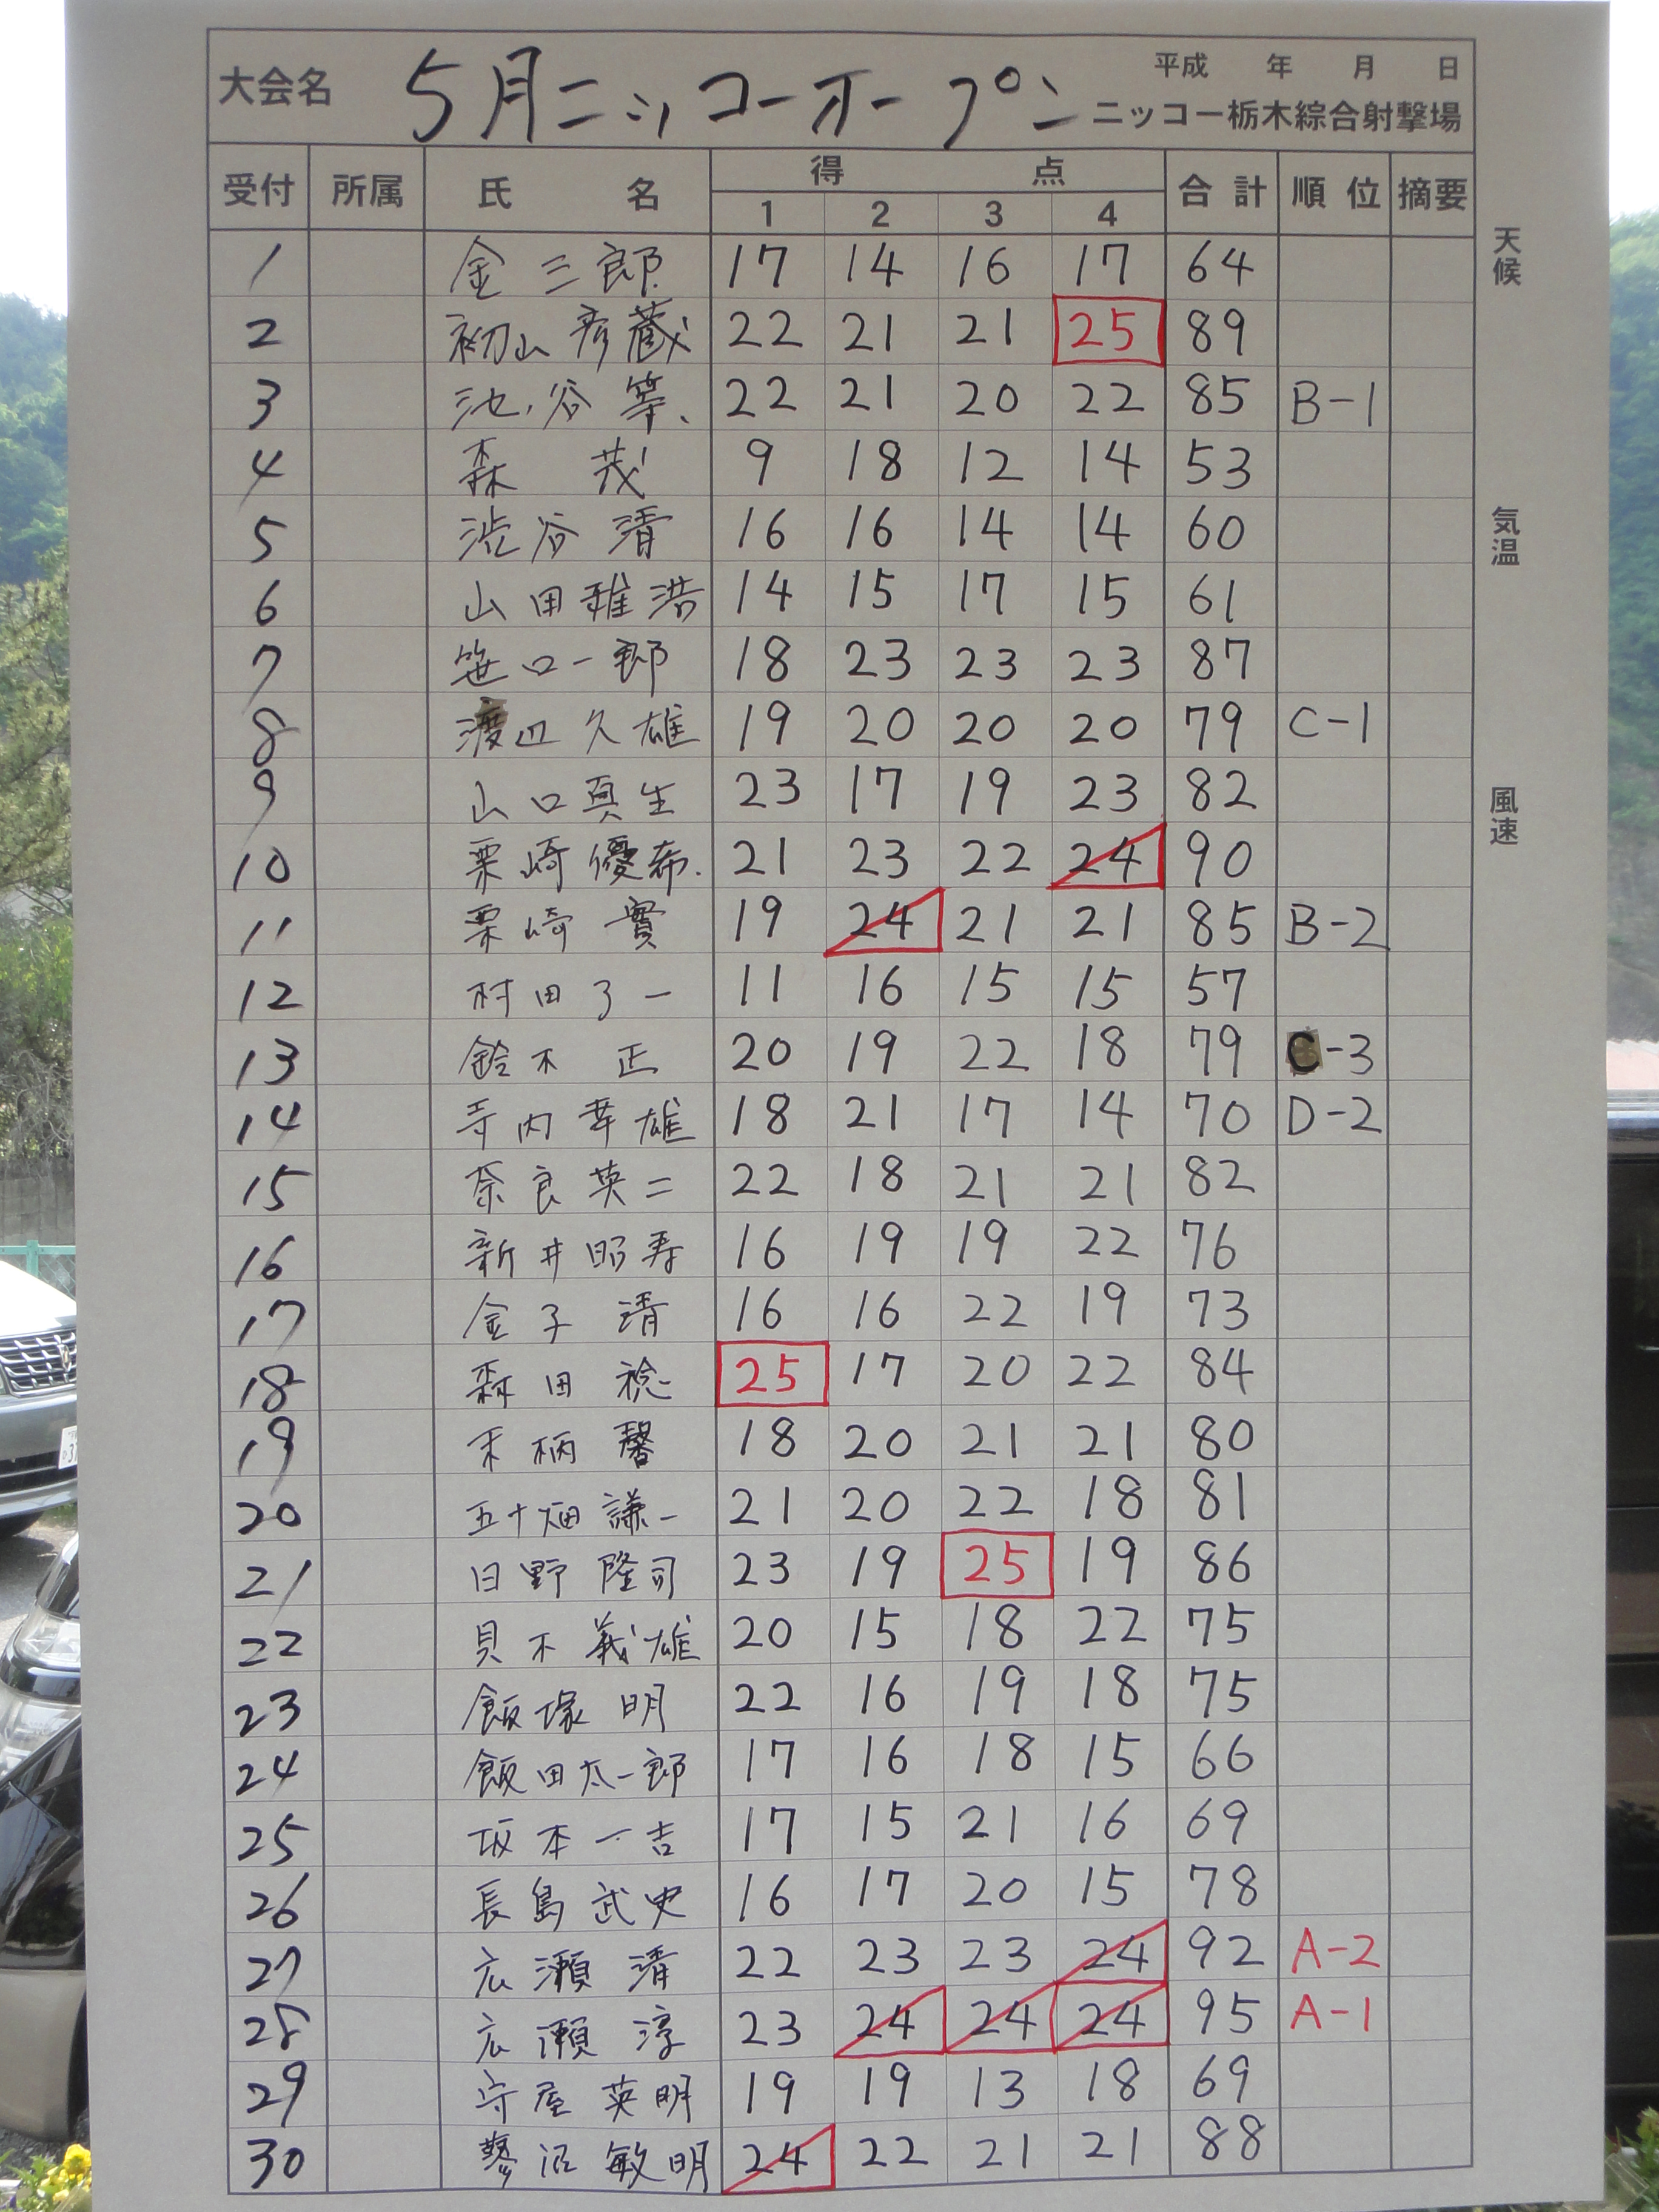 大会名 5月ニッコーオープン 平成 年 月 日
ニッコー栃木綜合射撃場
受付 所属 氏 名 得 点 合計 順位 摘要
1 2 3 4
1 金三郎 17 14 16 17 64
2 初山彦蔵 22 21 21 25 89
3 池谷等 22 21 20 22 85 B-1
4 森茂 9 18 12 14 53
5 渋谷清 16 16 14 14 60
6 山田雅浩 14 15 17 15 61
7 笹口一郎 18 23 23 23 87
8 渡辺久雄 19 20 20 20 79 C-1
9 山口真生 23 17 19 23 82
10 栗崎優希 21 23 22 24 90
11 栗崎實 19 24 21 21 85 B-2
12 村田了一 11 16 15 15 57
13 鈴木正 20 19 22 18 79 C-3
14 寺内幸雄 18 21 17 14 70 D-2
15 奈良英二 22 18 21 21 82
16 新井昭寿 16 19 19 22 76
17 金子清 16 16 22 19 73
18 森田稔 25 17 20 22 84
19 柄馨 18 20 21 21 80
20 五十畑謙一 21 20 22 18 81
21 日野隆司 23 19 25 19 86
22 貝木義雄 20 15 18 22 75
23 飯塚明 22 16 19 18 75
24 飯田太一郎 17 16 18 15 66
25 坂本一吉 17 15 21 16 69
26 長島武史 16 17 20 15 78
27 広瀬清 22 23 23 24 92 A-2
28 広瀬淳 23 24 24 24 95 A-1
29 守屋英明 19 19 13 18 69
30 沼敏明 24 22 21 21 88
天候
気温
風速